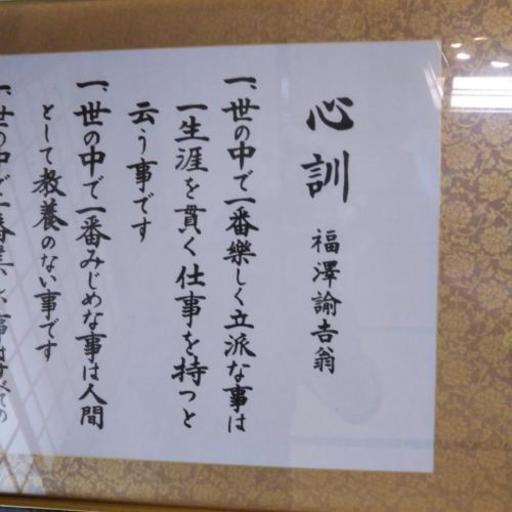 心訓 福澤諭吉翁
一、世の中で一番樂しく立派な事は
一生涯を貫く仕事を持つと
云う事です
一、世の中で一番みじめな事は人間
として教養のない事です